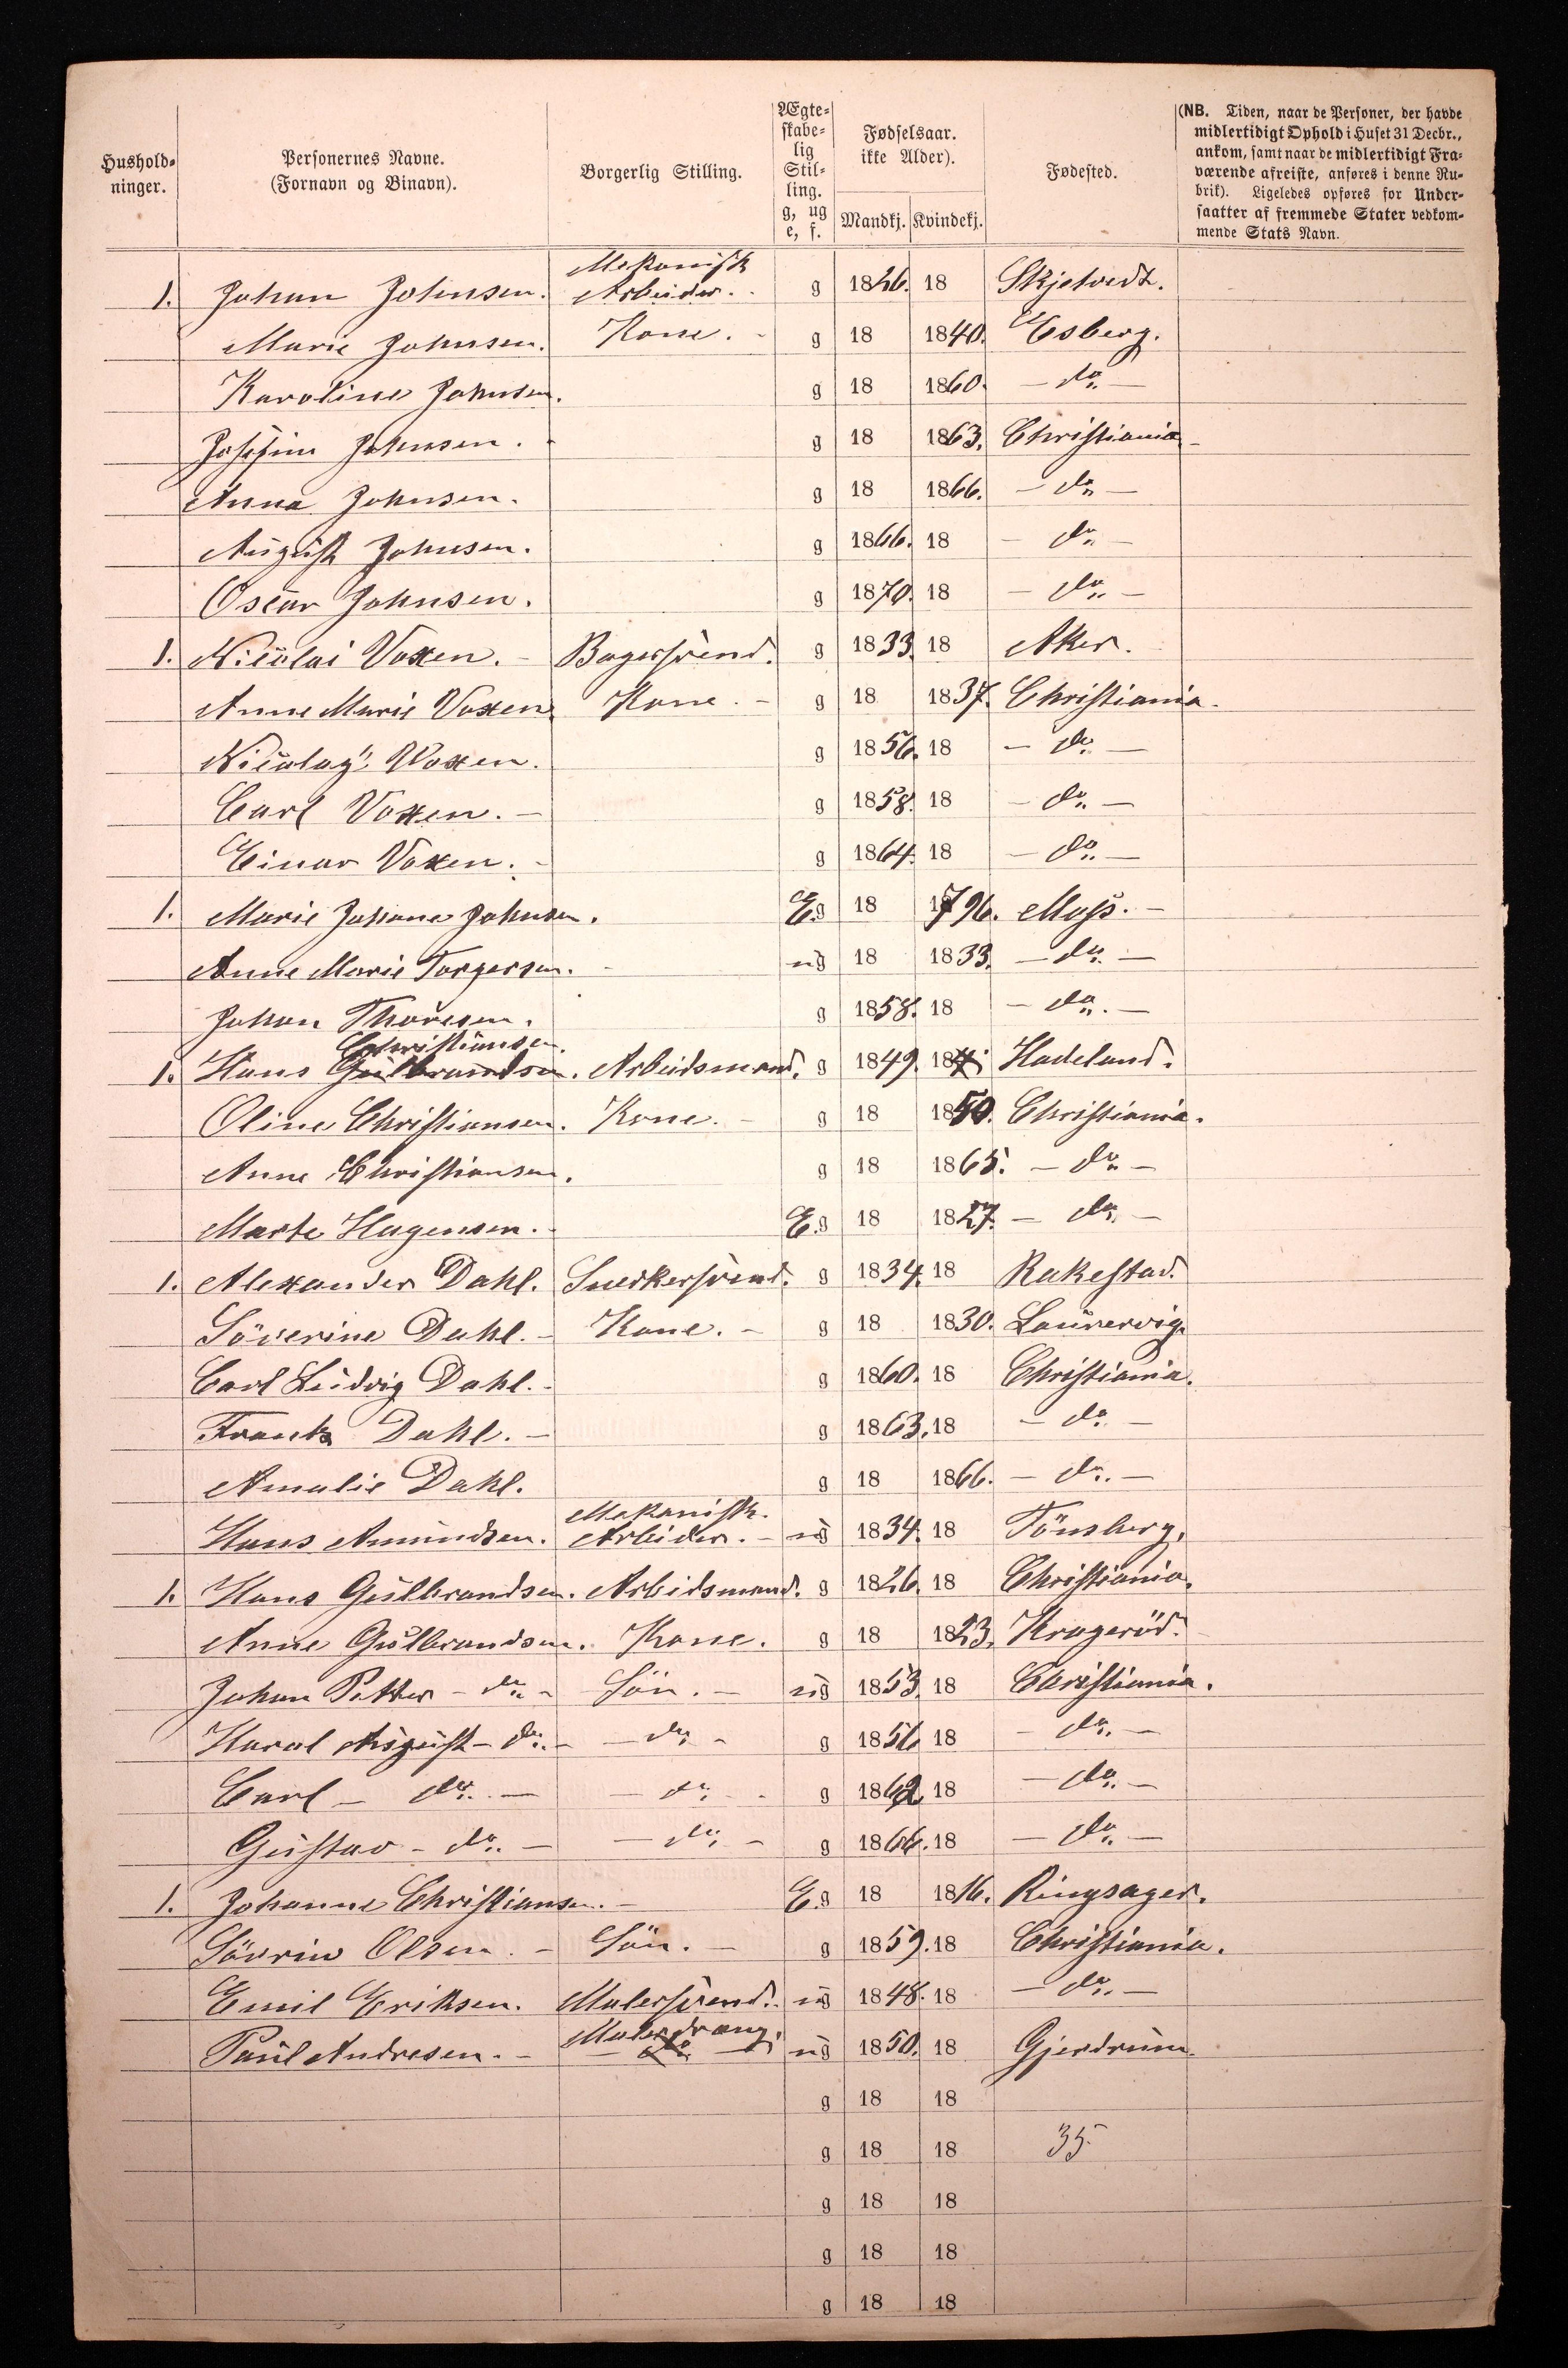 Hushold-
ninger.
Personernes Navne.
(Fornavn og Binavn).
Borgerlig Stilling.
Ægte-
skabe-
lig
Stil-
ling.
g, ug
e, f.
Fødselsaar.
ikke Alder).
Mandkj. Kvindekj.
Fødested.
(NB. Tiden, naar de Personer, der havde
midlertidigt Ophold i Huset 31 Decbr.,
ankom, samt naar de midlertidigt Fra-
værende afreiste, anføres i denne Ru-
brik). Ligeledes opføres for Under-
saatter af fremmede Stater vedkom-
mende Stats Navn.
1. Johan Johnsen. Mekanisk Arbeider. g 1826. 18 Skjetvedt.
Marie Johnsen. Kone. g 18 1840. Esberg.
Karoline Johnsen. g 18 1860. - do -
Josefine Johnsen. g 18 1863. Christiania
Anna Johnsen. g 18 1866. - do -
August Johnsen. g 1866. 18 - do -
Oscar Johnsen. g 1870. 18 - do -
1. Nicolai Voxen. - Bagersvend. g 1833. 18 Aker.
Anne Marie Voxen Kone. - g 18 1837. Christiania.
Nicolay Voxen. g 1856. 18 - do -
Carl Voxen. - g 1858. 18 - do -
Einar Voxen. - g 1864. 18 - do -
1. Marie Johane Johnsen. E.g 18 1796. Moss. -
Anne Marie Torgersen. - ug 18 1833. - do -
Johan Thoresen. g 1858. 18 - do. -
Christiansen.
1. Hans Gulbrandsen. Arbeidsmand. g 1849. 18 Hadeland.
Oline Christiansen. Kone. - g 18 1850. Christiania.
Anne Christiansen. g 18 1865. - do -
Marte Hagensen. E.g 18 1827. - do -
1. Alexander Dahl. Snedkersvend. g 1834. 18 Rakestad.
Söverine Dahl. - Kone. - g 18 1830. Laurervig.
Carl Ludvig Dahl. - g 1860. 18 Christiania.
Frantz Dahl. - g 1863. 18 - do -
Amalie Dahl. g 18 1866. - do. -
Hans Amundsen. Mekanisk. Arbeider. - ug 1834. 18 Tönsberg.
1. Hans Gulbrandsen. Arbidsmand. g 1826. 18 Christiania.
Anne Gulbrandsen. Kone. g 18 1823. Krageröd.
Johan Petter - do - Sön. - ug 1853. 18 Christiania.
Haral August - do. - - do - g 1856 18 - do. -
Carl - do. - - do - g 1862 18 - do. -
Gustav - do. - - do - g 1866. 18 - do. -
1. Johanne Christiansen. - E.g 18 1816. Ringsager.
Sövrin Olsen. - Sön. - g 1859. 18 Christiania.
Emil Eriksen. Malersvend. ug 1848. 18 - do. -
Paul Andresen. - Malerdreng. - do - ug 1850. 18 Gjerdrum.
g 18 18
g 18 18 35
g 18 18
g 18 18
g 18 18